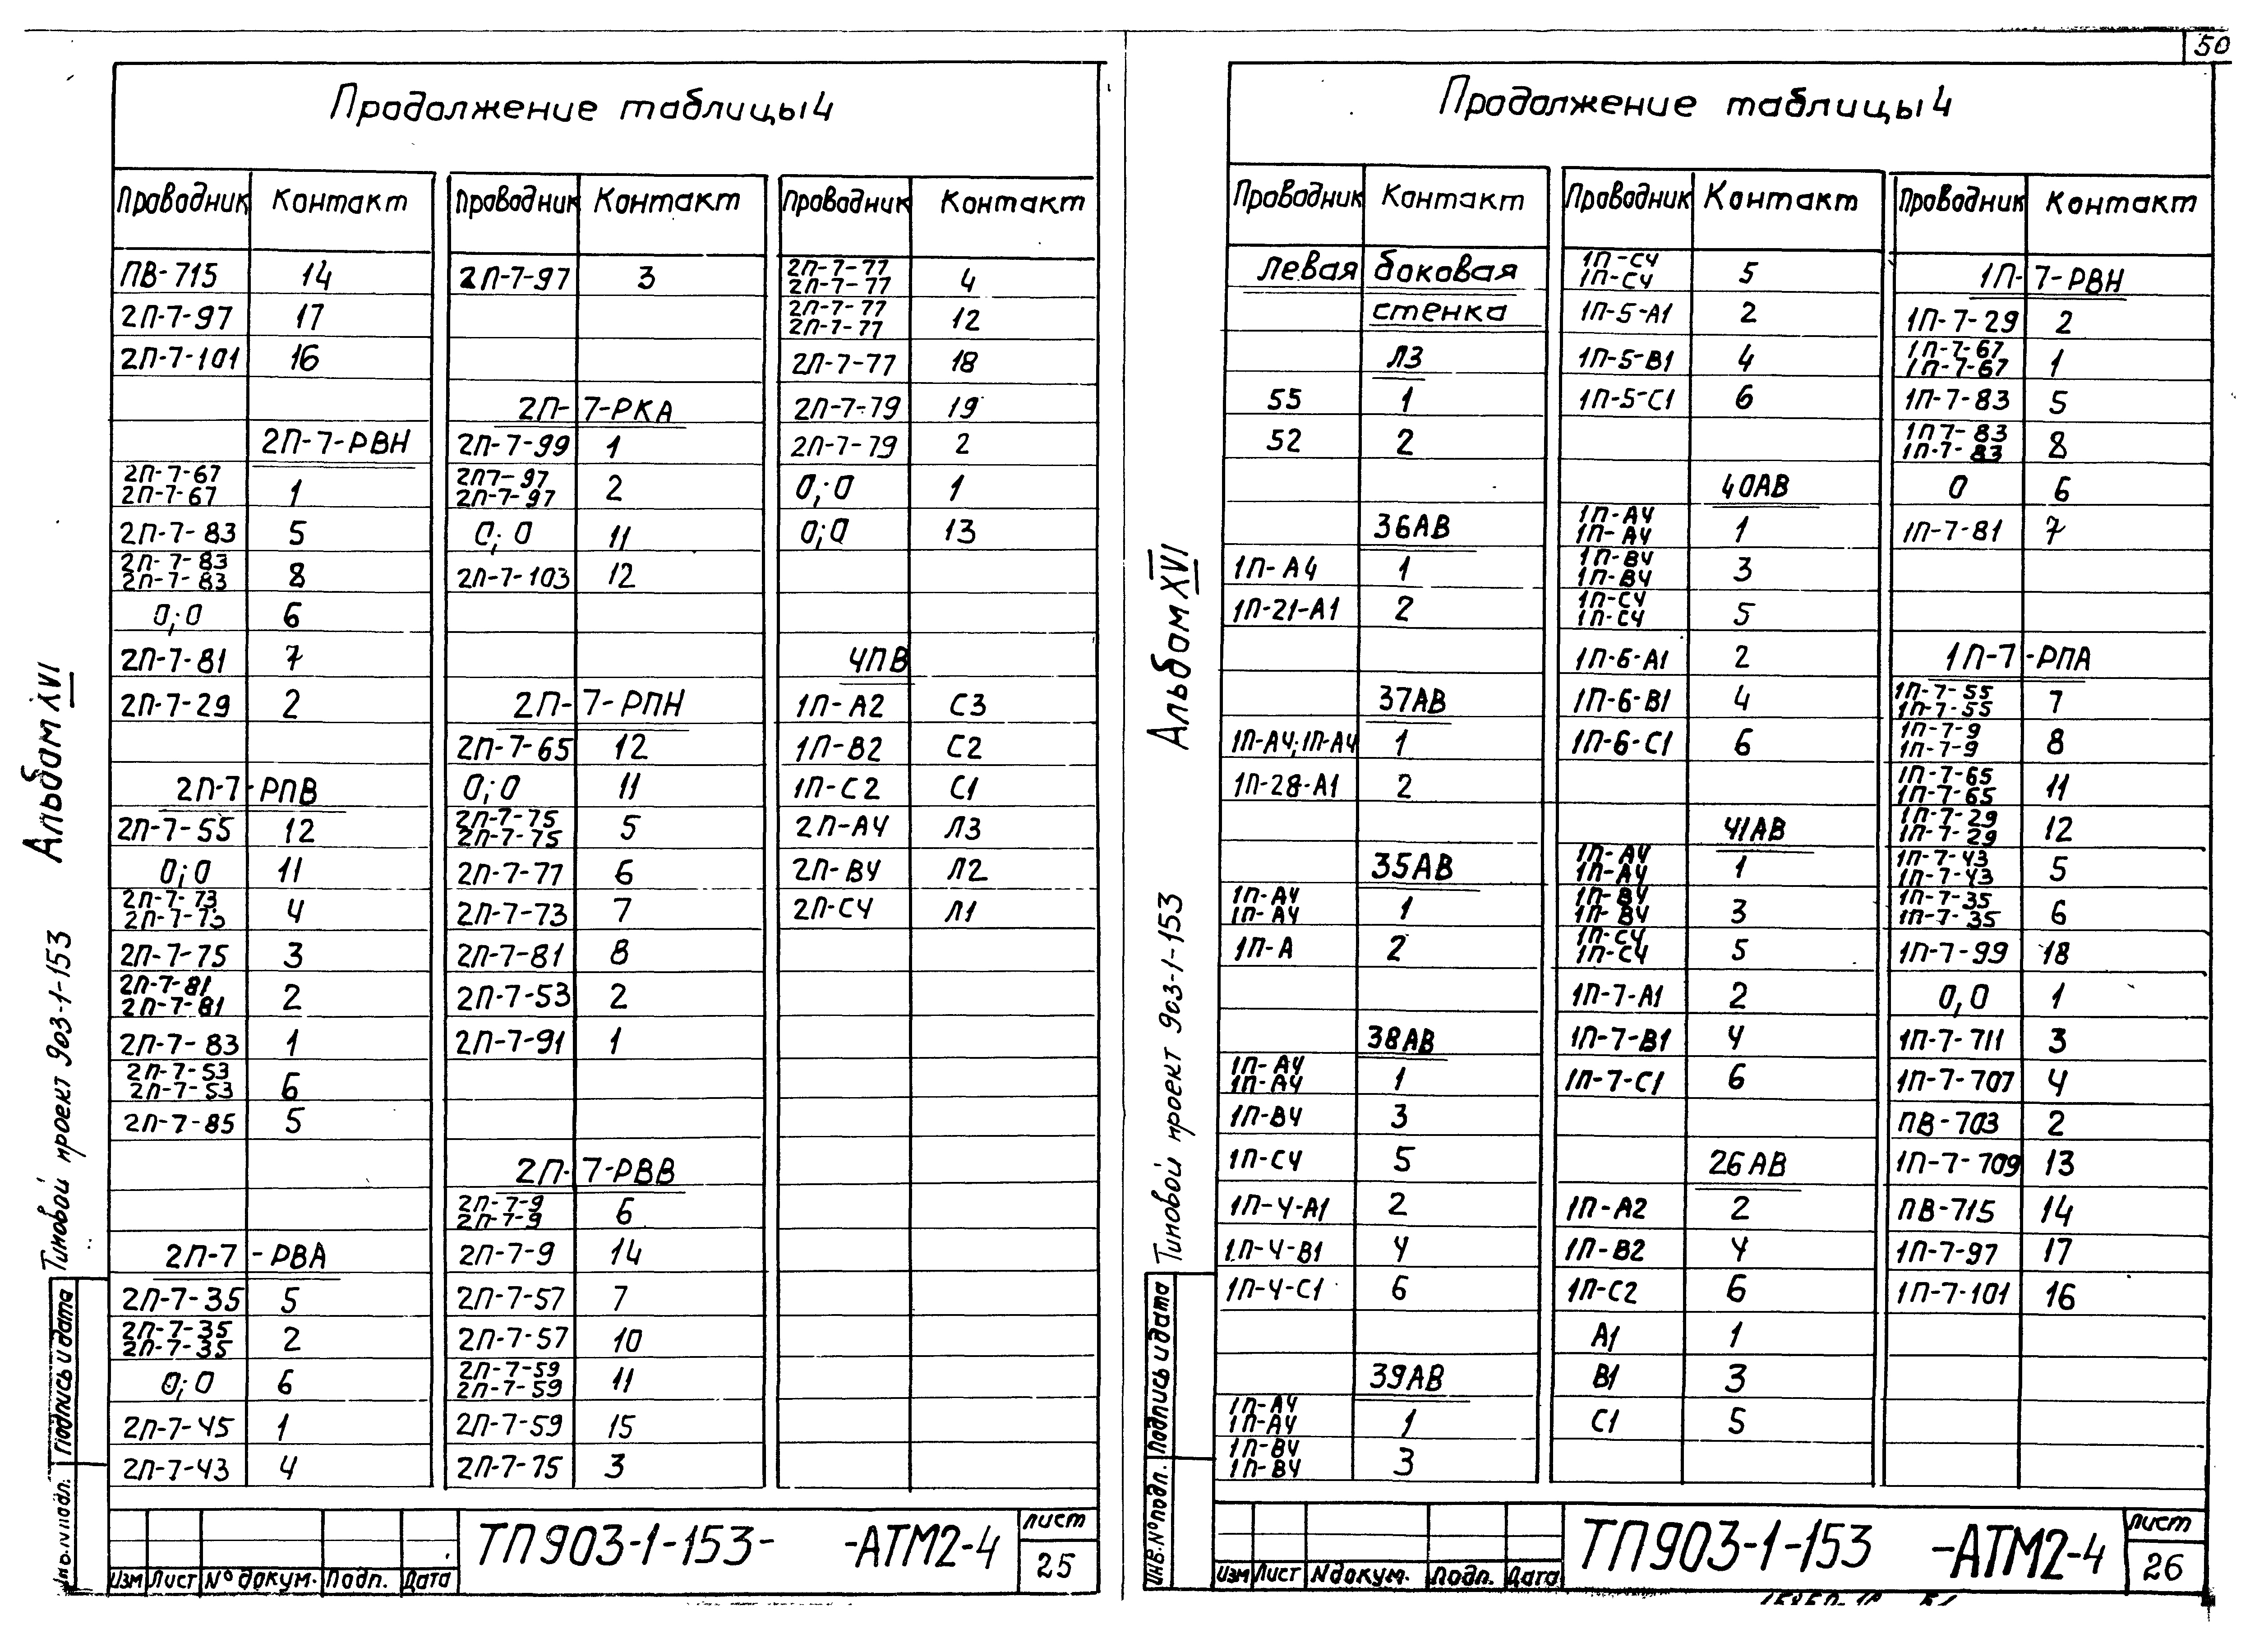 50
Продолжение таблицы 4
Проводник Контакт
ПВ-715 14
2П-7-97 17
2П-7-101 16
2П-7-РВН
2П-7-67
2П-7-67 1
2П-7-83 5
2П-7-83
2П-7-83 8
0; 0 6
2П-7-81 7
2П-7-29 2
2П-7-РПВ
2П-7-55 12
0; 0 11
2П-7-73
2П-7-73 4
2П-7-75 3
2П-7-81
2П-7-81 2
2П-7-83 1
2П-7-53
2П-7-53 6
2П-7-85 5
2П-7-РВА
2П-7-35 5
2П-7-35
2П-7-35 2
0; 0 6
2П-7-45 1
2П-7-43 4
Проводник Контакт
2П-7-97 3
2П-7-РКА
2П-7-99 1
2П7-97
2П-7-97 2
0; 0 11
2П-7-103 12
2П-7-РПН
2П-7-65 12
0; 0 11
2П-7-75
2П-7-75 5
2П-7-77 6
2П-7-73 7
2П-7-81 8
2П-7-53 2
2П-7-91 1
2П-7-РВВ
2П-7-9
2П-7-9 6
2П-7-9 14
2П-7-57 7
2П-7-57 10
2П-7-59
2П-7-59 11
2П-7-59 15
2П-7-75 3
Проводник Контакт
2П-7-77
2П-7-77 4
2П-7-77
2П-7-77 12
2П-7-77 18
2П-7-79 19
2П-7-79 2
0; 0 1
0; 0 13
4ПВ
1П-А2 С3
1П-В2 С2
1П-С2 С1
2П-А4 Л3
2П-В4 Л2
2П-С4 Л1
Альбом XVI
Типовой проект 903-1-153
Подпись и дата
Изм Лист № докум. Подп. Дата
ТП903-1-153- -АТМ2-4
Лист
25
Продолжение таблицы 4
Проводник Контакт
Левая боковая
стенка
Л3
55 1
52 2
36АВ
1П-А4 1
1П-21-А1 2
37АВ
1П-А4; 1П-А4 1
1П-28-А1 2
35АВ
1П-А4
1П-А4 1
1П-А 2
38АВ
1П-А4
1П-А4 1
1П-В4 3
1П-С4 5
1П-4-А1 2
1П-4-В1 4
1П-4-С1 6
39АВ
1П-А4
1П-А4 1
1П-В4
1П-В4 3
Проводник Контакт
1П-С4
1П-С4 5
1П-5-А1 2
1П-5-В1 4
1П-5-С1 6
40АВ
1П-А4
1П-А4 1
1П-В4
1П-В4 3
1П-С4
1П-С4 5
1П-6-А1 2
1П-6-В1 4
1П-6-С1 6
41АВ
1П-А4
1П-А4 1
1П-В4
1П-В4 3
1П-С4
1П-С4 5
1П-7-А1 2
1П-7-В1 4
1П-7-С1 6
26АВ
1П-А2 2
1П-В2 4
1П-С2 6
А1 1
В1 3
С1 5
Проводник Контакт
1П-7-РВН
1П-7-29 2
1П-7-67
1П-7-67 1
1П-7-83 5
1П7-83
1П-7-83 8
0 6
1П-7-81 7
1П-7-РПА
1П-7-55
1П-7-55 7
1П-7-9
1П-7-9 8
1П-7-65
1П-7-65 11
1П-7-29
1П-7-29 12
1П-7-43
1П-7-43 5
1П-7-35
1П-7-35 6
1П-7-99 18
0, 0 1
1П-7-711 3
1П-7-707 4
ПВ-703 2
1П-7-709 13
ПВ-715 14
1П-7-97 17
1П-7-101 16
Альбом XVI
Типовой проект 903-1-153
Подпись и дата
ИНВ. № подл.
Изм Лист N докум. Подп. Дата
ТП903-1-153 -АТМ2-4
Лист
26